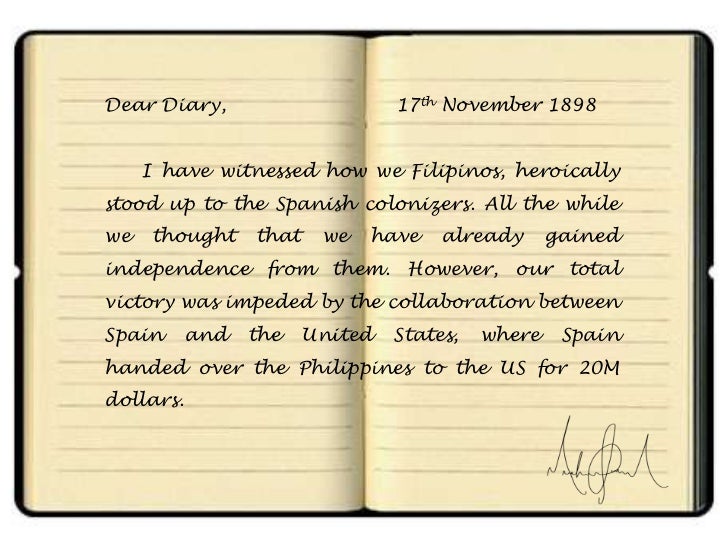 Dear Diary, 17th November 1898
I have witnessed how we Filipinos, heroically
stood up to the Spanish colonizers. All the while
we thought that we have already gained
independence from them. However, our total
victory was impeded by the collaboration between
Spain and the United States, where Spain
handed over the Philippines to the US for 20M
dollars.